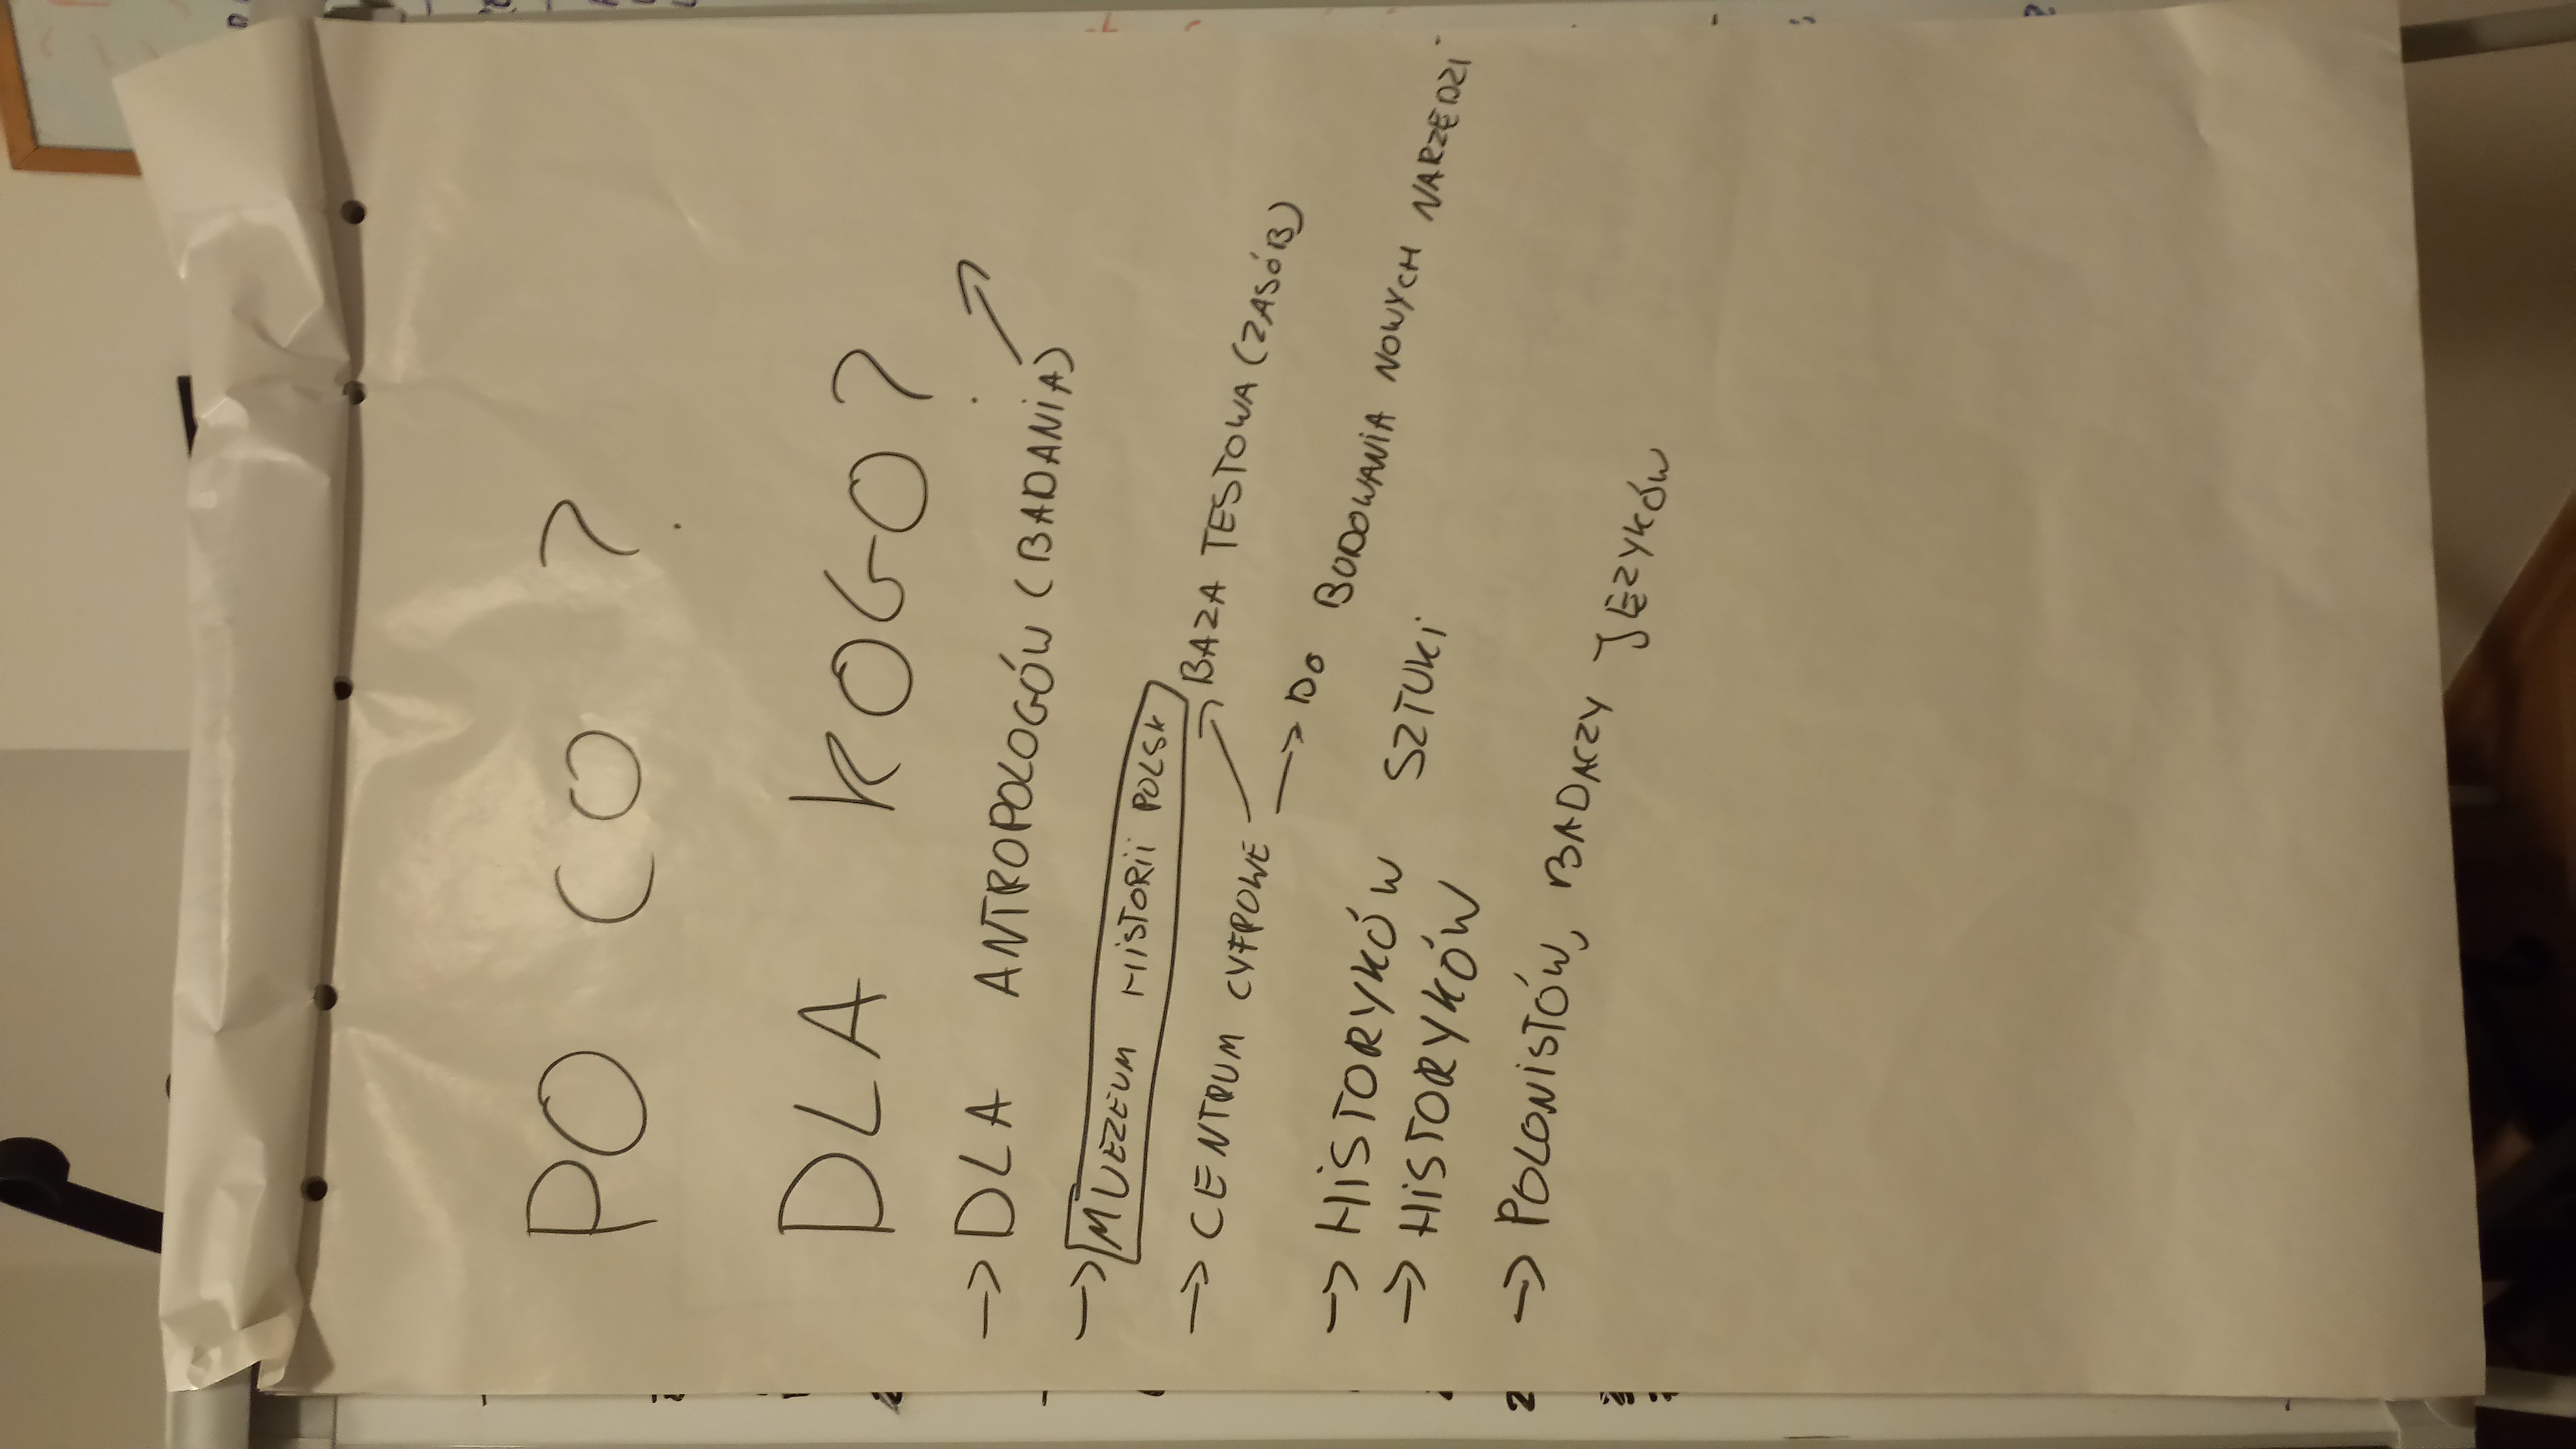 PO CO?
DLA KOGO?
→ DLA ANTROPOLOGÓW (BADANIA) →
→ MUEZEUM HISTORII POLSK
→ CENTRUM CYFROWE → BAZA TESTOWA (ZASÓB)
→ DO BUDOWANIA NOWYCH NARZĘDZI
→ HISTORYKÓW SZTUKI
→ HISTORYKÓW
→ POLONISTÓW, BADACZY JĘZYKÓW